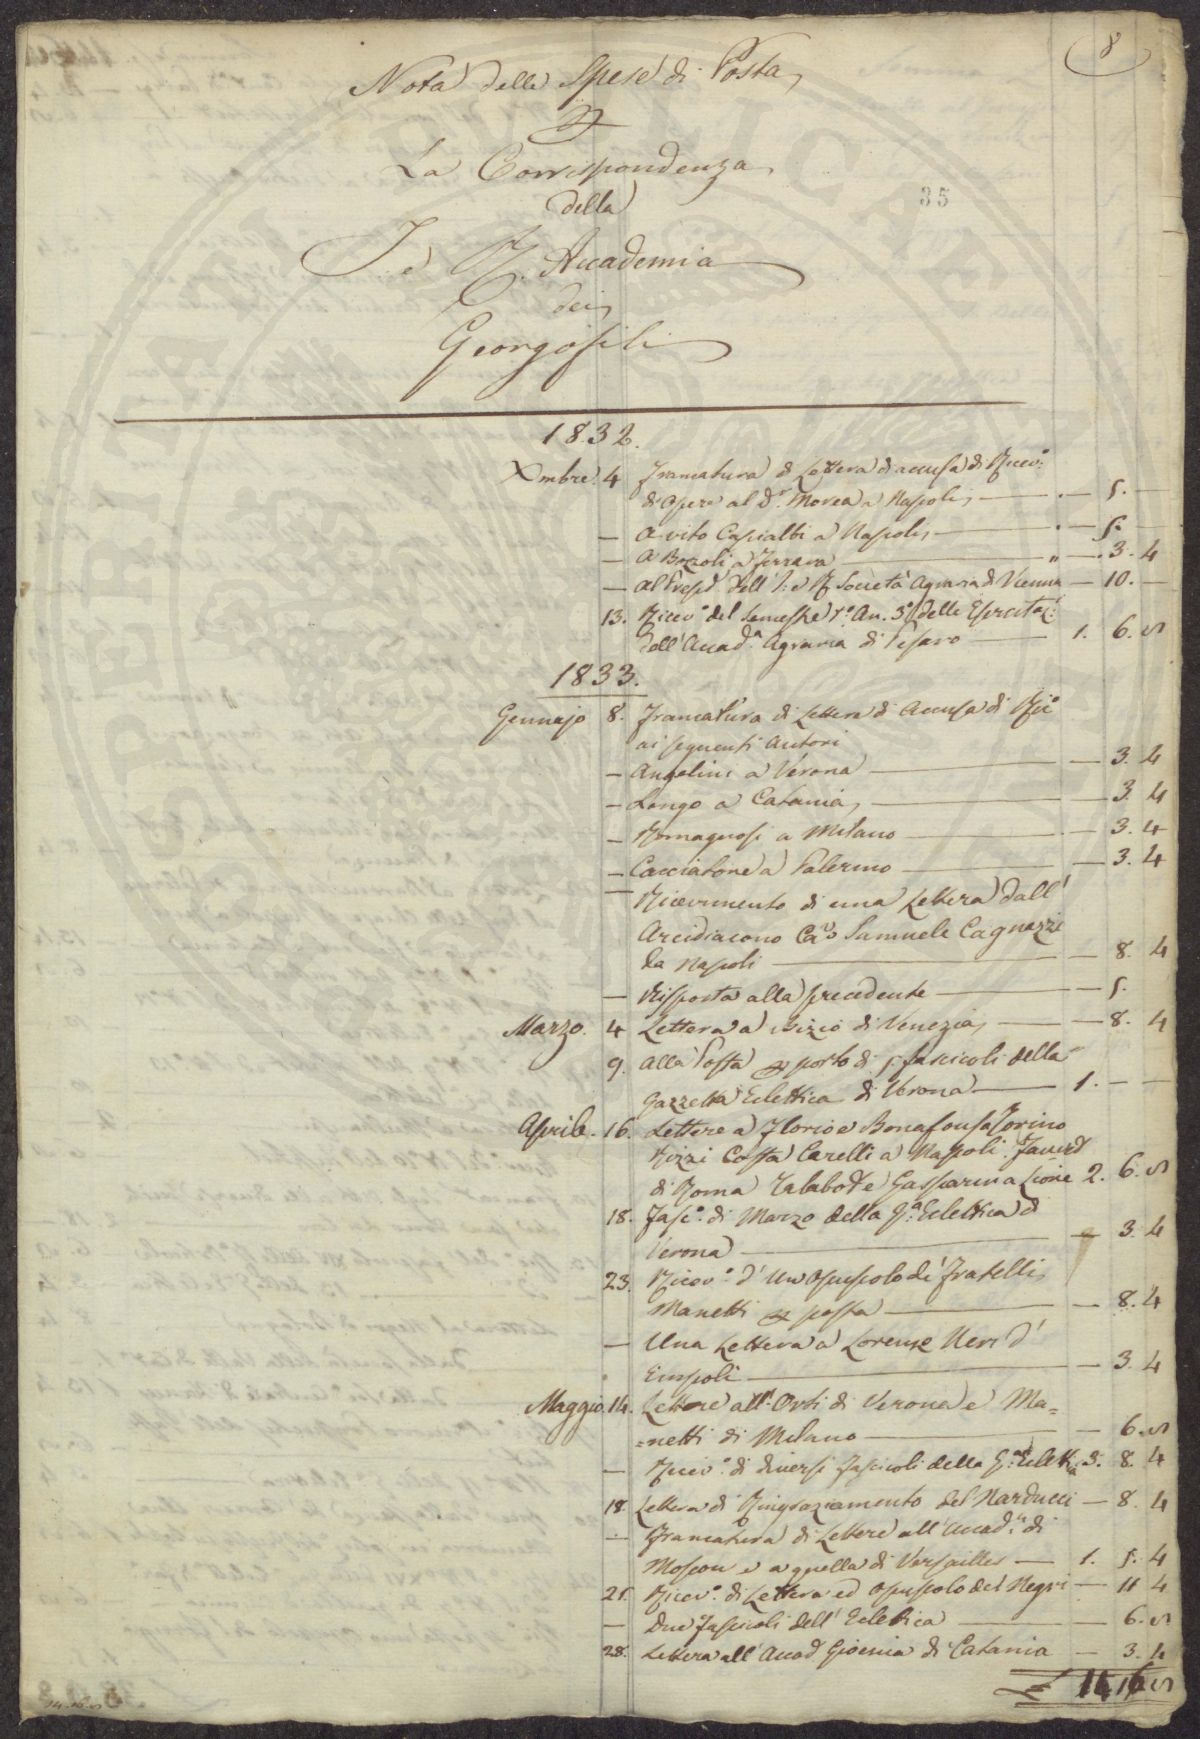 8
Nota delle Spese di Posta
La Corrispondenza
della
35
I. e R. Accademia
dei
Georgofili
1832.
Xmbre. 4 Francatura di Lettera d'accusa di Ricevo:
di Opere al Dr. Morea a Napoli — . — 5. —
— A Vito Capialbi a Napoli — . — 5. —
— A Bozzoli a Ferrara — " — . 3. 4
— Al Presid. dell' I: e R Società Agraria di Vienna — 10. —
13. Ricevo. del Semestre 1o. An. 5o. delle Esercitaz:
dell' Accada. Agraria di Pesaro — 1. 6. 8
1833.
Gennajo 8. Francatura di Lettera di Accusa di Rico
ai seguenti Autori
— Angelini a Verona — 3. 4
— Longo a Catania — 3. 4
— Romagnosi a Milano — 3. 4
— Cacciatore a Palermo — 3. 4
— Ricevimento di una Lettera dall'
Arcidiacono Cavo Samuele Cagnazzi
da Napoli — 8. 4
— Risposta alla precedente — 5.
Marzo. 4 Lettera a Bizio di Venezia — 8. 4
9. Alla Posta porto di 5. fascicoli della
Gazzetta Eclettica di Verona — 1. — —
Aprile. 16. Lettere a Florio e Bonafous a Torino
Rizzi Costa Carelli a Napoli
di Roma Talabot e Gasparin a Lione 2. 6. 8
18. Fasco. di Marzo della Ga. Eclettica di
Verona — 3. 4
23. Ricevo. d'un Opuscolo de' Fratelli
Manetti posta — 8. 4
— Una Lettera a Lorenzo Neri d'
Empoli — 3. 4
Maggio. 14. Lettere all' Orti di Verona e Ma=
=netti di Milano — 6. 8
— Ricevo. di diversi fascicoli della Ga. Eclettica 3. 8. 4
18. Lettera di Ringraziamento del Narducci — 8. 4
— Francatura di Lettere all' Accada. di
Moscou e a quella di Versailles — 1. 5. 4
21. Ricevo. di Lettera ed Opuscolo del Negri — 11 4
— Due fascicoli dell' Eclettica — 6. 8
28. Lettera all' Accad Gioenia di Catania — 3. 4
£ 14. 16. 8
14. 16. 8